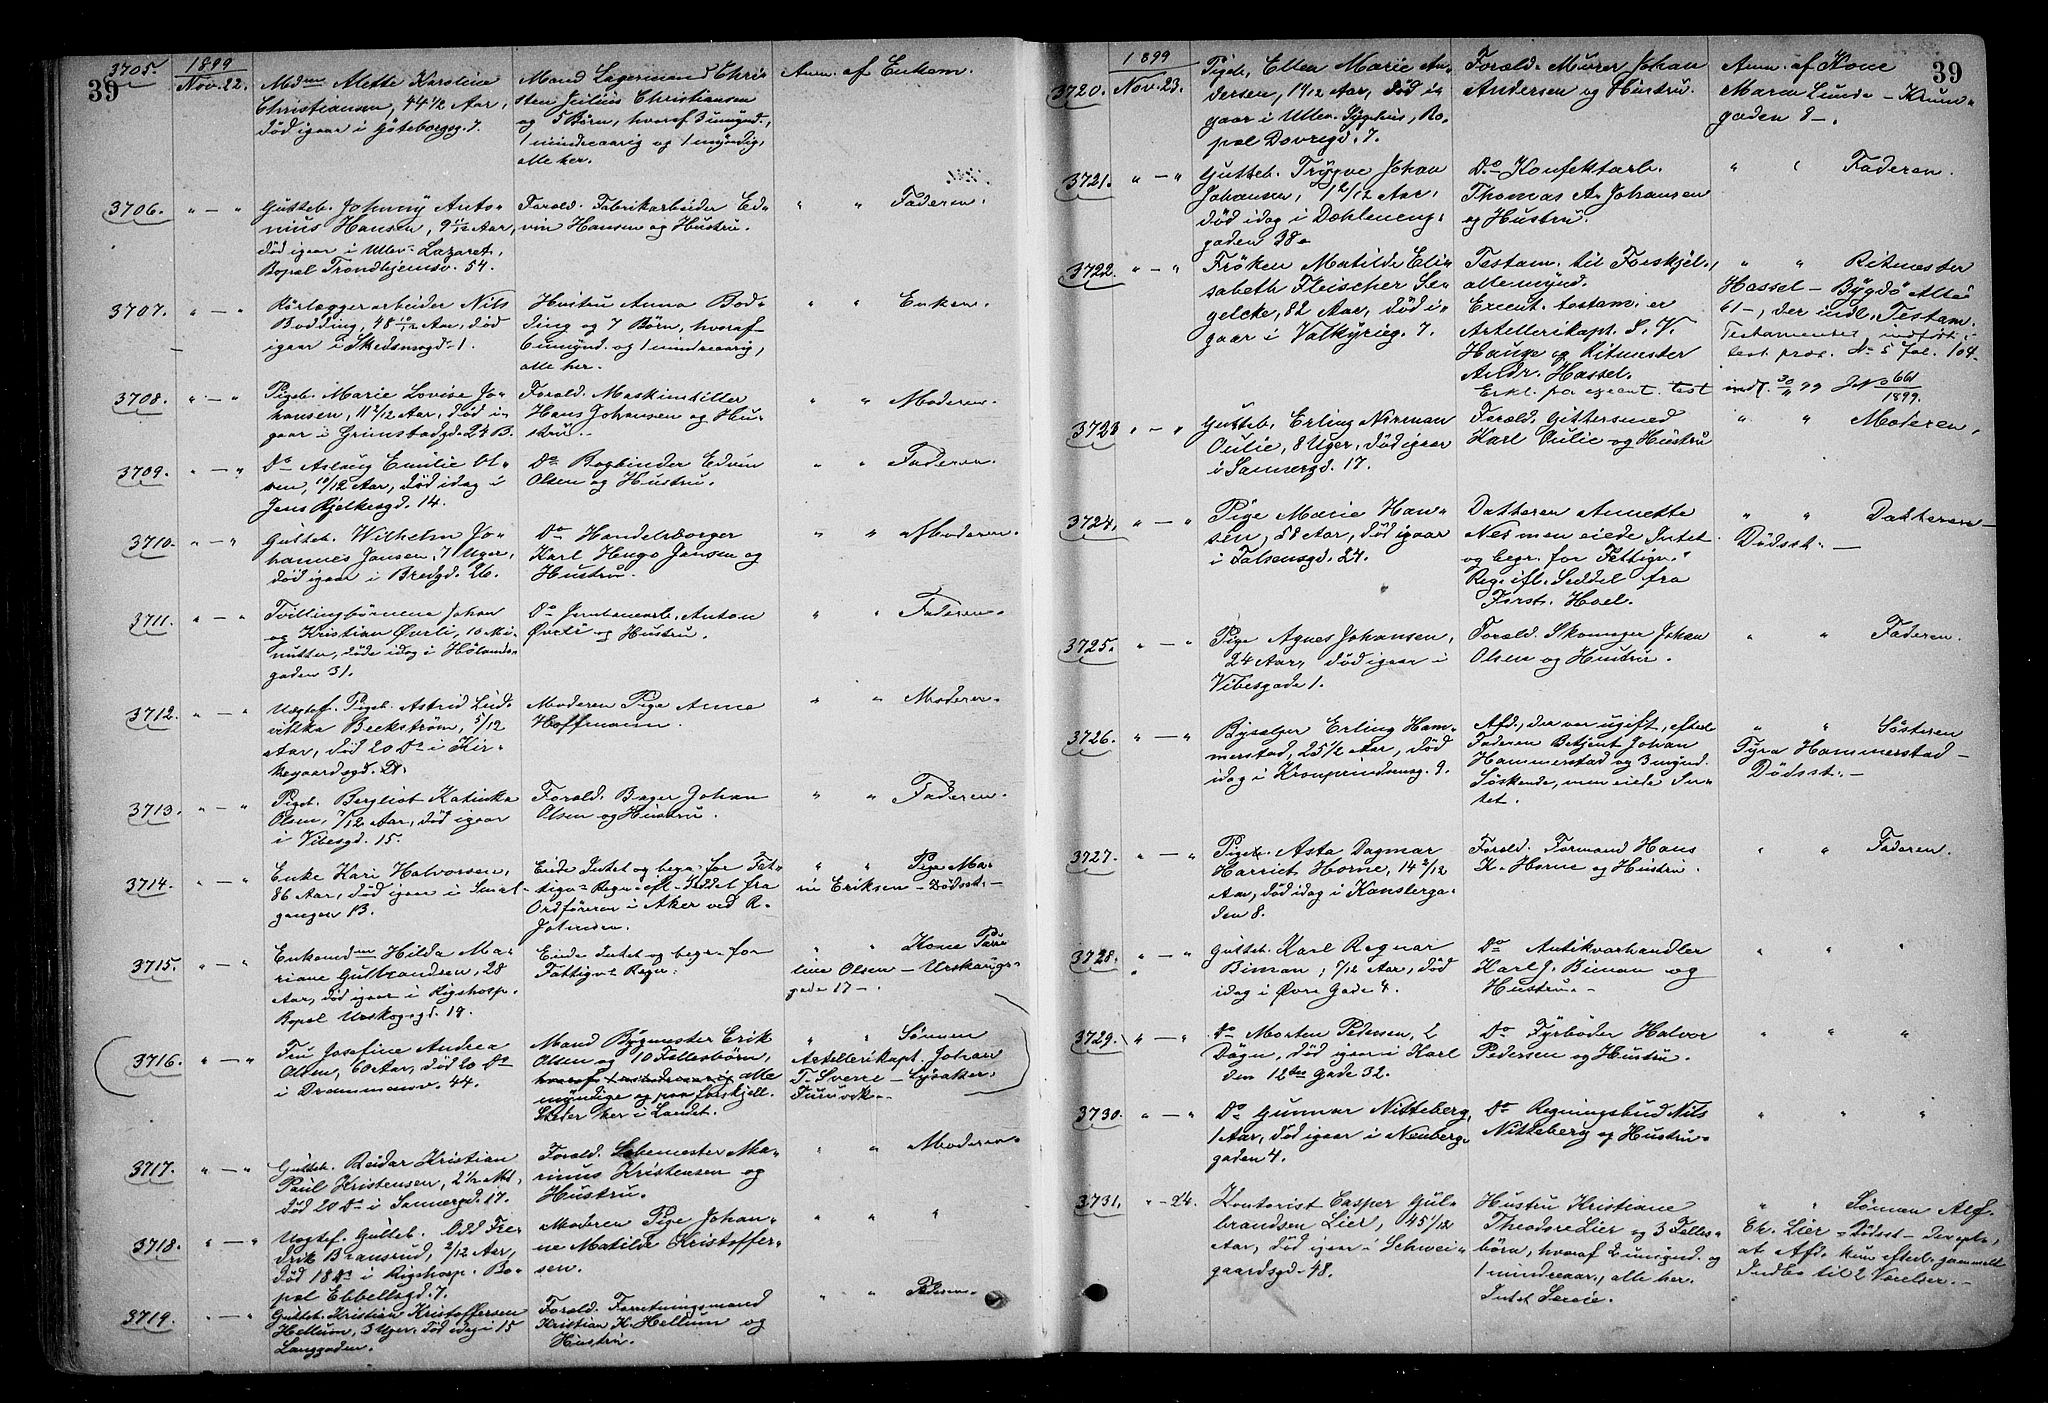 39
3705. 1899 Nov. 22.
Mdm Alette Karoline
Christiansen, 44 1/2 Aar,
død igaar i Göteborgsg. 7.
Mand Lagermand Chri-
sten Julius Christiansen
og 5 Børn, hvoraf 3 umynd.,
1 mindreaarig og 1 myndig,
alle her.
Anm. af Enkem.
3706. " — "
Gutteb. Johnny Anto-
nius Hansen, 9 11/12 Aar,
død igaar i Ullev. Lazaret,
Bopæl Trondhjemsv. 54.
Foræld. Fabrikarbeider Ed-
vin Hansen og Hustru.
" " Faderen.
3707. " — "
Rörlæggerarbeider Nils
Bodding, 48 10/12 Aar, død
igaar i Skedsmogd. 1.
Hustru Anna Bod-
ding og 7 Børn, hvoraf
6 umynd. og 1 mindreaarig,
alle her.
" " Enken.
3708. " — "
Pigeb. Marie Lovise Jo-
hansen, 11 2/12 Aar, død i-
gaar i Grimstadgd. 24 B.
Foræld. Maskinstiller
Hans Johansen og Hu-
stru.
" " Moderen.
3709. " — "
Do Aslaug Emilie Ol-
sen, 10/12 Aar, død idag i
Jens Bjelkesgd. 14.
Do Bogbinder Edvin
Olsen og Hustru.
" " Faderen.
3710. " — "
Gutteb. Wilhelm Jo-
hannes Jansen, 7 Uger,
død igaar i Bredgd. 26.
Do Handelsborger
Karl Hugo Jansen og
Hustru.
" " Moderen.
3711. " — "
Tvillingbørnene Johan
og Kristian Øvrli, 10 Mi-
nutter, døde idag i Hølands-
gaden 31.
Do Jernbanearb. Anton
Øvrli og Hustru.
" " Faderen.
3712. " — "
Uægtef. Pigeb. Astrid Lud-
vikka Beckstrøm, 5/12
Aar, død 20 Ds i Kir-
kegaardsgd.
Moderen Pige Anna
Hoffmann.
" " Moderen.
3713. " — "
Pigeb. Bergliot Katinka
Olsen, 7/12 Aar, død igaar
i Vibesgd. 15.
Foræld. Bager Johan
Olsen og Hustru.
" " Faderen.
3714. " — "
Enke Kari Halvorsen,
86 Aar, død igaar i Smal-
gangen 13.
Eiede Intet og begr. for Fat-
tigv. Regn. ifl. Seddel fra
Ordføreren i Aker ved R.
Johnsen.
" " Pige Ma-
rie Eriksen — Dødsst. —
3715. " — "
Enkemdm Hilda Ma-
riane Gulbrandsen, 28
Aar, død igaar i Rigshosp.
Bopæl Urskogsgd. 19.
Eiede Intet og begr. for
Fattigv. Regn.
" " Kone Pau-
line Olsen — Urskougs-
gade 17 —.
3716. " — "
Fru Josefine Andrea
Olsen, 60 Aar, død 20 Ds
i Drammensv. 44.
Mand Bygmester Erik
Olsen og 10 Fellesbörn,
hvoraf 1 mindreaarig alle
myndige og paa forskjell.
Steder her i Landet.
" " Sönnen
Artellerikapt. Johan
T. Sverre — Lysaker,
Furuvik —.
3717. " — "
Gutteb. Reidar Kristian
Paul Kristensen, 2 1/2 Md.,
død 20 Ds i Sannergd. 17.
Foræld. Løbemester Ma-
rinus Kristensen og
Hustru.
" " Moderen.
3718. " — "
Uægtef. Gutteb. Odd Fre-
drik Bransrud, 2/12 Aar,
død 18 Ds i Rigshosp. Bo-
pæl Ebbellsgd. 7.
Moderen Pige Johan-
ne Matilde Kristoffer-
sen.
" " "
3719. " — "
Gutteb. Kristian Kristoffersen
Hellum, 3 Uger, død idag i 15
Langgaden.
Foræld. Forretningsmand
Kristian K. Hellum og
Hustru.
" " Faderen.
39
3720. 1899 Nov. 23.
Pigeb. Ellen Marie An-
dersen, 1 11/12 Aar, død i-
gaar i Ullev. Sygehus, Bo-
pæl Dovregd. 7.
Foræld. Murer Johan
Andersen og Hustru.
Anm. af Kone
Maren Lunde — Krum-
gaden 8 —.
3721. " — "
Gutteb. Trygve Johan
Johansen, 1 2/12 Aar,
død idag i Dæhleneng-
gaden 38.
Do Konfektarb.
Thomas A. Johansen
og Hustru.
" " Faderen.
3722. " — "
Frøken Matilde Eli-
sabeth Fleischer Se-
gelcke, 82 Aar, død i-
gaar i Valkyrieg. 7.
Testam. til Forskjel.,
alle mynd.
Execut. testam. er
Artellerikapt. S. V.
Hauge og Ritmester
Andr. Hassel.
Erkl. fra execut. test. indk. 30/11 99 J No 661/1899.
" " Ritmester
Hassel — Bygdø Allé
61 —, der indl. Testam.
Testamentet indført i
test. prot. No 5 fol. 104.
3723. " — "
Gutteb. Erling Norman
Oulie, 8 Uger, død igaar
i Sannergd. 17.
Foræld. Gittersmed
Karl Oulie og Hustru
" " Moderen.
3724. " — "
Pige Marie Han-
sen, 58 Aar, død igaar
i Falsensgd. 24.
Datteren Annette
Næs men eiede Intet
og begr. for Fattigv.
Reg. ifl. Seddel fra
Forst. Hoel.
" " Datteren —
Dødsst. —
3725. " — "
Pige Agnes Johansen,
24 Aar, død igaar i
Vibesgade 1.
Foræld. Skomager Johan
Olsen og Hustru.
" " Faderen.
3726. " — "
Bysælger Erling Ham-
merstad, 25 1/2 Aar, død
idag i Kronprindsensg. 9.
Afd., der var ugift, efterl.
Faderen Betjent Johan
Hammerstad og 3 mynd.
Søskende, men eiede In-
tet.
" " Søsteren
Tyra Hammerstad —
Dødsst. —
3727. " — "
Pigeb. Asta Dagmar
Harriet Horne, 14 2/12
Aar, død idag i Kanslerga-
den 8.
Foræld. Formand Hans
K. Horne og Hustru.
" " Faderen.
3728. " — "
Gutteb. Karl Regnar
Biman, 7/12 Aar, død
idag i Øvre Gade 4.
Do Antikvarhandler
Karl J. Biman og
Hustru.
" " "
3729. " — "
Do Morten Pedersen, 2
Døgn, død igaar i Karl
den 12tes Gade 32.
Do Fyrbøder Halvor
Pedersen og Hustru.
" " "
3730. " — "
Do Gunnar Nitteberg,
1 Aar, død igaar i Neuberg-
gaden 4.
Do Regningsbud Nils
Nitteberg og Hustru.
" " "
3731. " — 24.
Kontorist Casper Gul-
brandsen Lier, 45 1/12
Aar, død igaar i Schwei-
gaardsgd. 48.
Hustru Kristiane
Theodore Lier og 3 Felles-
börn, hvoraf 2 umynd. og
1 mindreaar., alle her.
Intet Særeie.
" " Sönnen Alf.
Ek. Lier — Dødsst — der oplr.,
at Afd. kun efterl. gammelt
Indbo til 2 Værelser. —